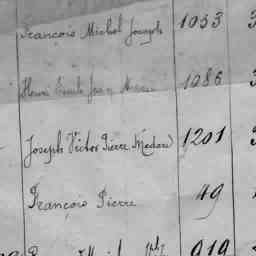 François Michel Joseph 1033 3
Henri Emile Jean Marie 1086 3
Joseph Victor Pierre Médard 1201 3
François Pierre 49
919